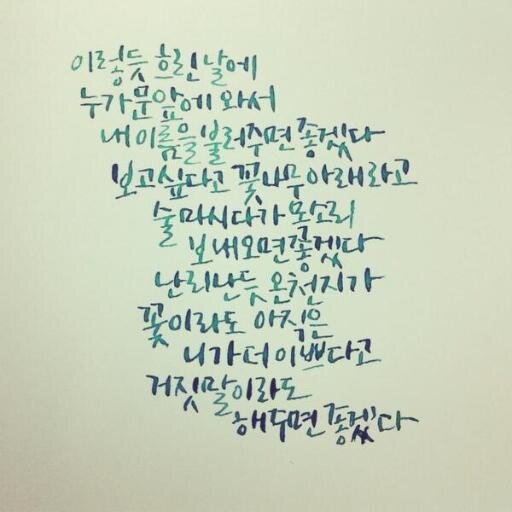 이렇듯 흐린 날에
누가 문 앞에 와서
내 이름을 불러주면 좋겠다
보고싶다고 꽃나무 아래라고
술 마시다가 목소리
보내오면 좋겠다
난리난듯 온천지가
꽃이라도 아직은
니가 더 이쁘다고
거짓말이라도
해주면 좋겠다